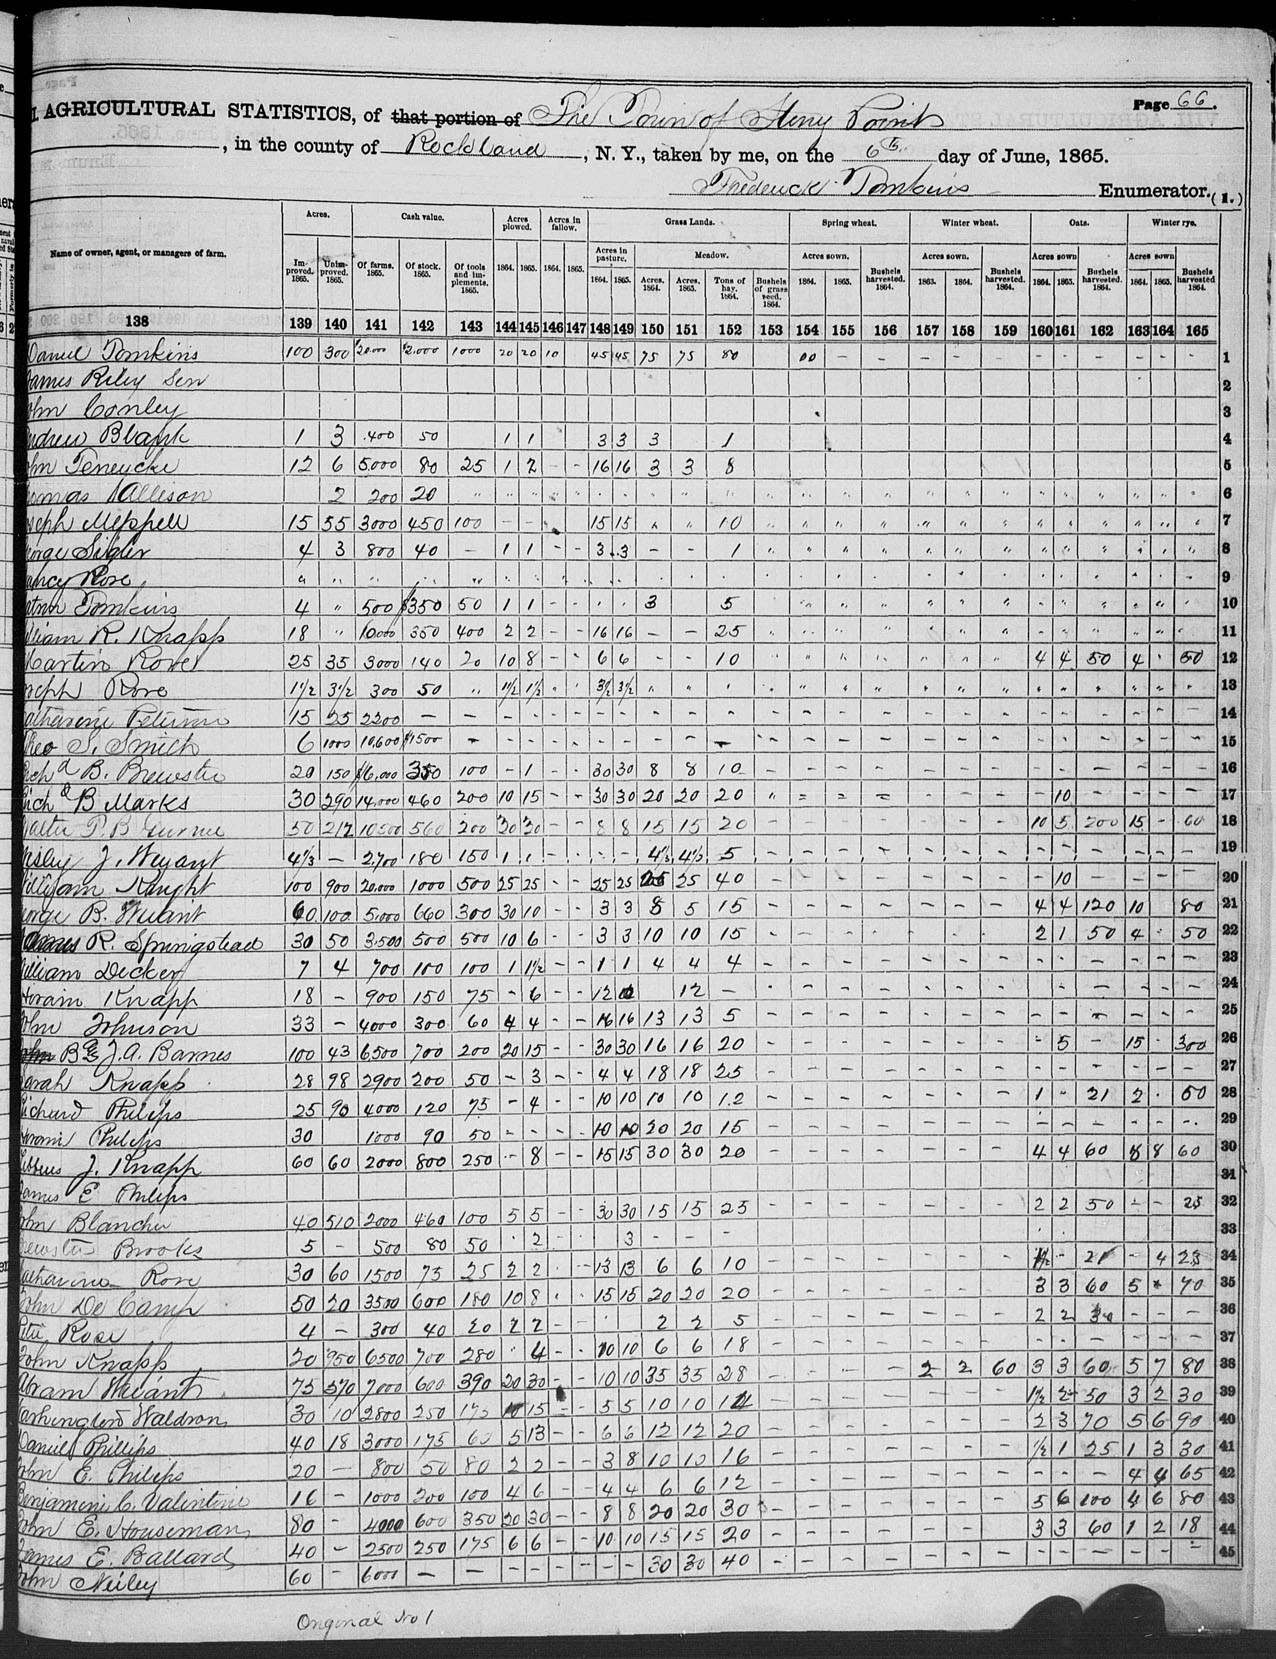 Page 66.
AGRICULTURAL STATISTICS, of that portion of The Town of Stony Point
, in the county of Rockland, N. Y., taken by me, on the 6th day of June, 1865.
Frederick Tomkins Enumerator. (1.)
Acres. Cash value. Acres plowed. Acres in fallow. Grass Lands. Spring wheat. Winter wheat. Oats. Winter rye.
Name of owner, agent, or managers of farm. Improved. 1865. Unimproved. 1865. Of farms. 1865. Of stock. 1865. Of tools and implements. 1865. 1864. 1865. 1864. 1865. Acres in pasture. 1864. 1865. Meadow. Acres, 1864. Acres, 1865. Tons of hay. 1864. Bushels of grass seed. 1864. Acres sown. 1864. 1865. Bushels harvested. 1864. Acres sown. 1863. 1864. Bushels harvested. 1864. Acres sown 1864. 1865. Bushels harvested. 1864. Acres sown 1863. 1864. Bushels harvested 1864.
138 139 140 141 142 143 144 145 146 147 148 149 150 151 152 153 154 155 156 157 158 159 160 161 162 163 164 165
Daniel Tomkins 100 300 $20.000 $2.000 1000 20 20 10 45 45 75 75 80 00 – – – – – – – – – – – 1
James Riley Sen 2
John Conley 3
Andrew Blank 1 3 .400 50 1 1 3 3 3 1 4
John Teneycke 12 6 5,000 80 25 1 2 – – 16 16 3 3 8 5
Thomas Allison 2 200 20 6
Joseph 15 55 3000 450 100 – – 15 15 " " 10 7
George Sigler 4 3 800 40 – 1 1 – – 3 3 – – 1 8
Nancy Rose 9
Tomkins 4 " 500 $350 50 1 1 – – 3 5 10
William R. Knapp 18 " 10.000 350 400 2 2 – – 16 16 – – 25 11
Martin Rose 25 35 3000 140 20 10 8 – 6 6 – – 10 4 4 50 4 50 12
Joseph Rose 1½ 3½ 300 50 " 1½ 1½ 3½ 3½ 13
Catharine 15 25 2200 – – 14
Theo S. Smith 6 1000 10,600 $1500 – 15
Rich d B. Brewster 20 150 $6,000 350 100 – 1 – – 30 30 8 8 10 – 16
Rich d B Marks 30 290 14,000 460 200 10 15 – – 30 30 20 20 20 – 10 17
Walter P. B 50 217 10500 560 200 30 30 – – 8 8 15 15 20 – 10 5 200 15 – 60 18
J. Weyant 4⅓ – 2,700 180 150 1 1 5 19
William Knight 100 900 20,000 1000 500 25 25 – – 25 25 25 25 40 – 10 20
George B. Weiant 60 100 5,000 660 300 30 10 – – 3 3 5 5 15 – 4 4 120 10 80 21
R. Springstead 30 50 3500 500 500 10 6 – – 3 3 10 10 15 – 2 1 50 4 50 22
William Decker 7 4 700 100 100 1 1½ – – 1 1 4 4 4 – 23
Hiram Knapp 18 – 900 150 75 – 6 12 12 – 24
John Johnson 33 – 4000 300 60 4 4 – – 16 16 13 13 5 – 25
B & J. A. Barnes 100 43 6500 700 200 20 15 – – 30 30 16 16 20 – 5 – 15 300 26
Sarah Knapp 28 98 2900 200 50 – 3 – – 4 4 18 18 25 – 27
Richard Philips 25 90 4000 120 75 – 4 – – 10 10 10 10 12 – 1 – 21 2 50 28
Hiram Philips 30 1000 90 50 – – – – 10 10 20 20 15 – 29
J. Knapp 60 60 2000 800 250 – 8 – – 15 15 30 30 20 – 4 4 60 8 8 60 30
James E. Philips 31
John Blancher 40 510 2000 460 100 5 5 – – 30 30 15 15 25 – 2 2 50 – – 25 32
Brewster Brooks 5 – 500 80 50 2 3 – – – 33
Catharine Rose 30 60 1500 75 25 2 2 – 13 13 6 6 10 – 1½ – 21 – 4 23 34
John De Camp 50 20 3500 600 180 10 8 15 15 20 20 20 – 3 3 60 5 70 35
Peter Rose 4 – 300 40 20 2 2 – – 2 2 5 – 2 2 30 – – – 36
John Knapp 20 950 6500 700 280 4 – – 10 10 6 6 18 – 37
Abram Weiant 75 570 7000 600 390 20 30 – 10 10 35 35 28 – 2 2 60 3 3 60 5 7 80 38
Washington Waldron 30 10 2800 250 175 10 15 – – 5 5 10 10 12 – 1½ 2 50 3 2 30 39
Daniel Philips 40 18 3000 175 60 5 13 – – 6 6 12 12 20 – 2 3 70 5 6 90 40
John E. Philips 20 – 800 50 80 2 2 – – 3 8 10 10 16 – ½ 1 25 1 3 30 41
Benjamin C. Valentine 16 – 1000 200 100 4 6 – – 4 4 6 6 12 – 4 4 65 42
John E. Houseman 80 – 4000 600 350 20 30 – – 8 8 20 20 30 – 5 6 100 4 6 80 43
James E. Ballard 40 – 2500 250 175 6 6 – – 10 10 15 15 20 – 3 3 60 1 2 18 44
John Neiley 60 – 6000 – – – – – – 30 30 40 – 45
Original No 1